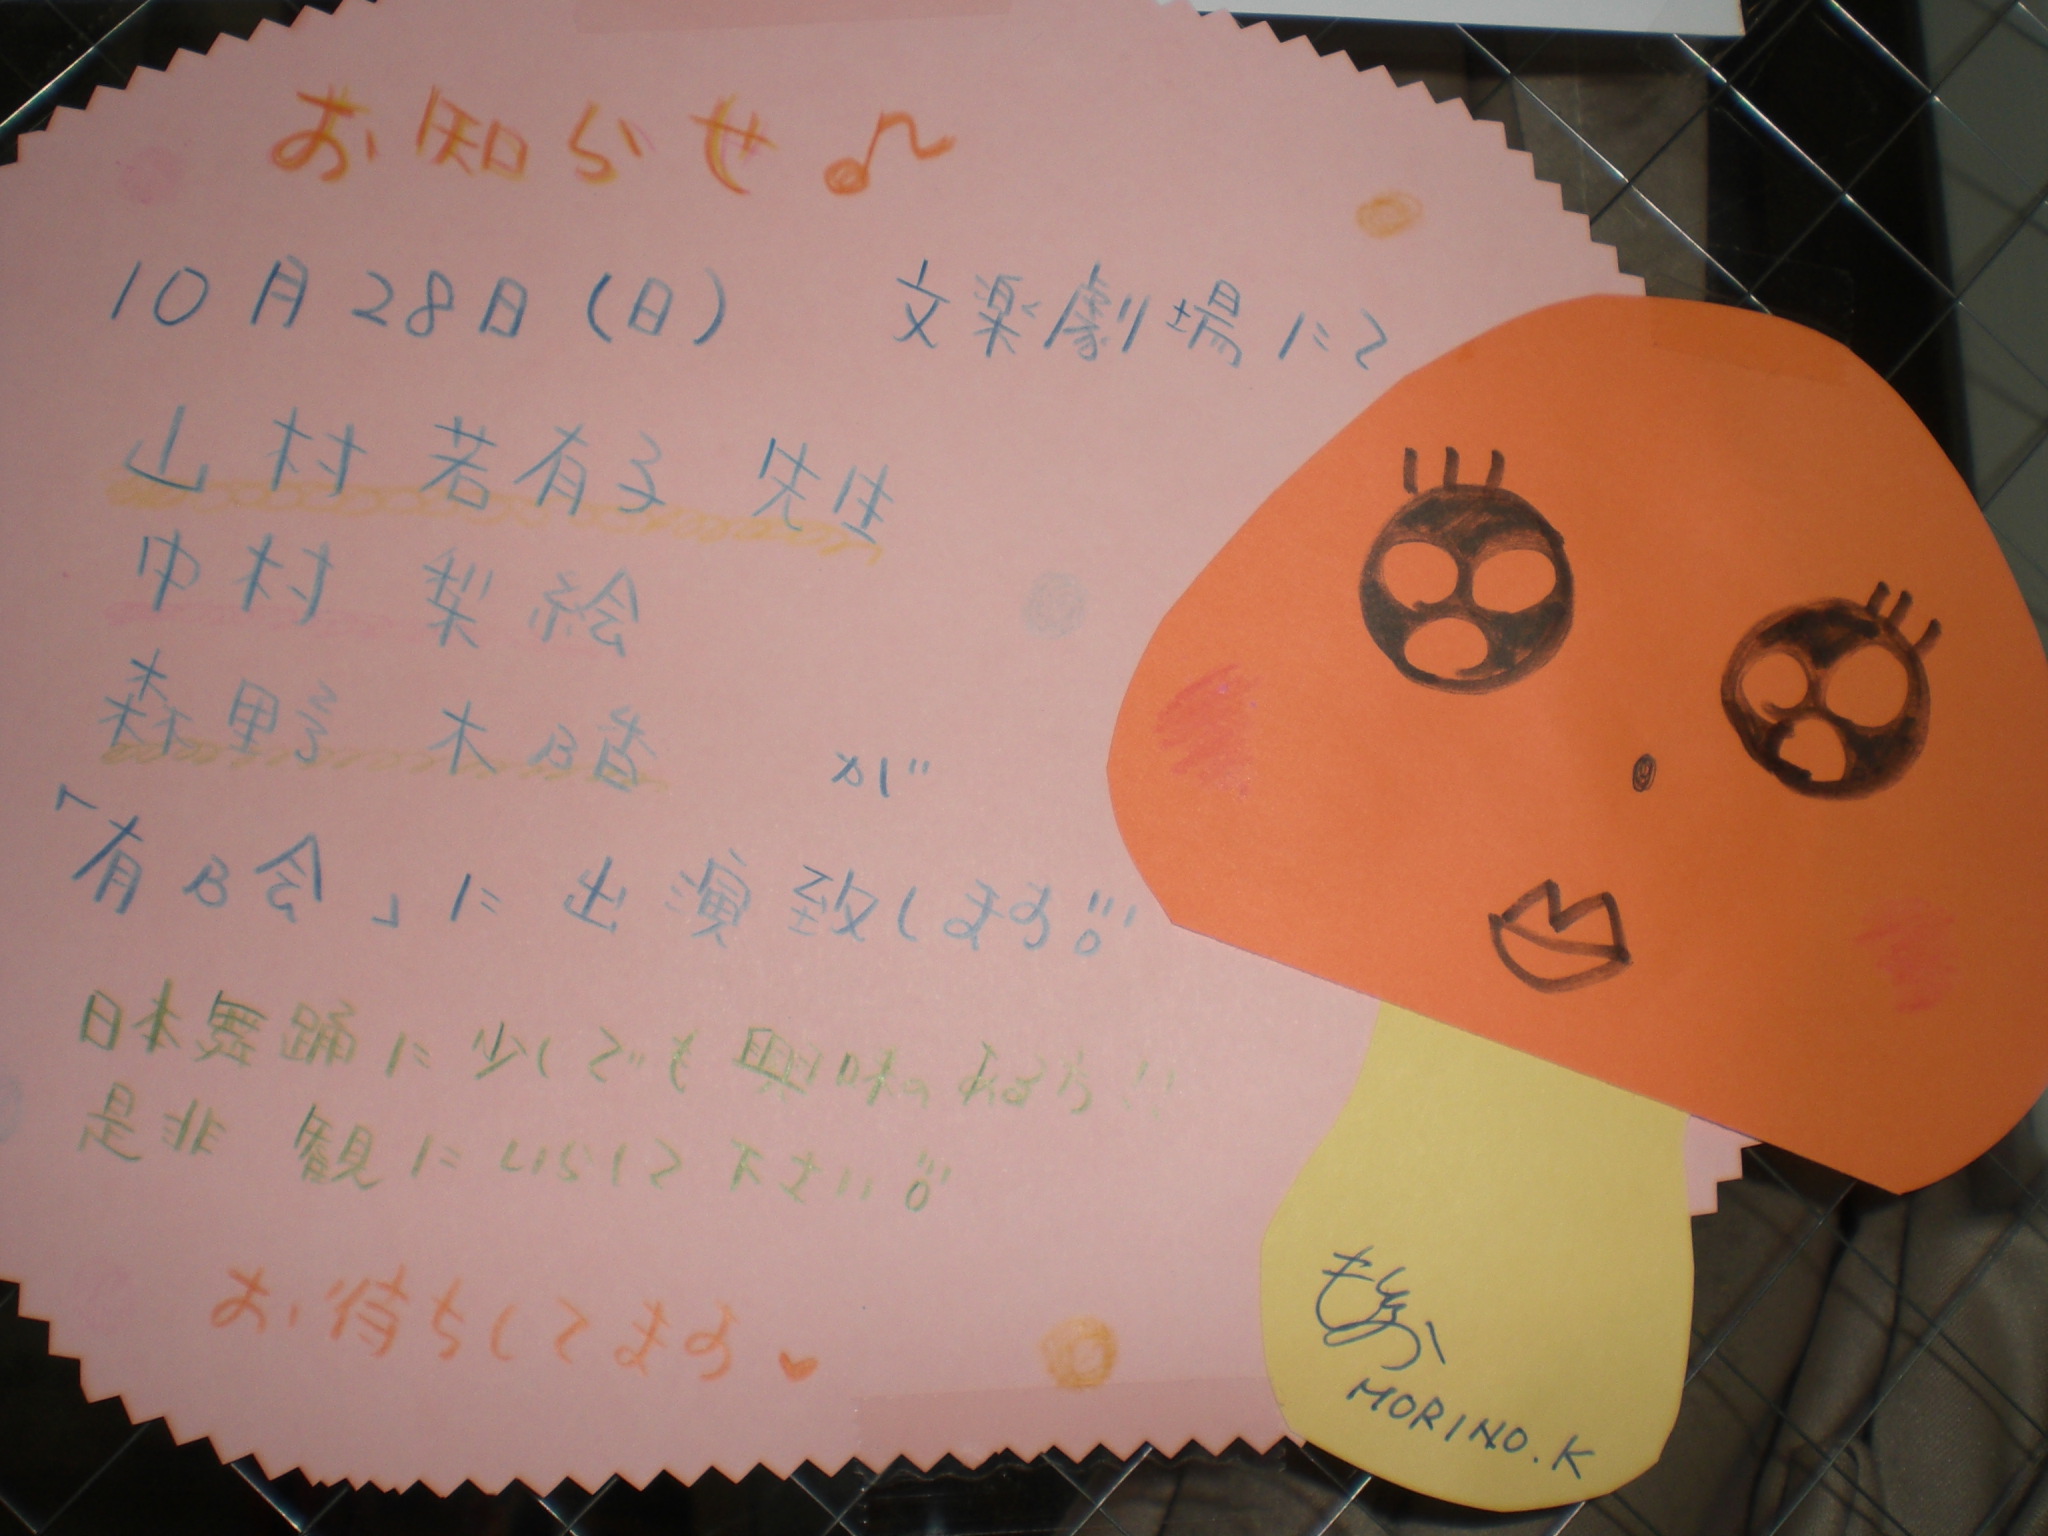 お知らせ♪
10月28日(日) 文楽劇場にて
山村 若有子 先生
中村 梨絵
森野 木皆 が
「有の会」に出演致します!!
日本舞踊に少しでも興味のある方!!
是非 観にいらして下さい!!
お待ちしてます♥
MORINO.K